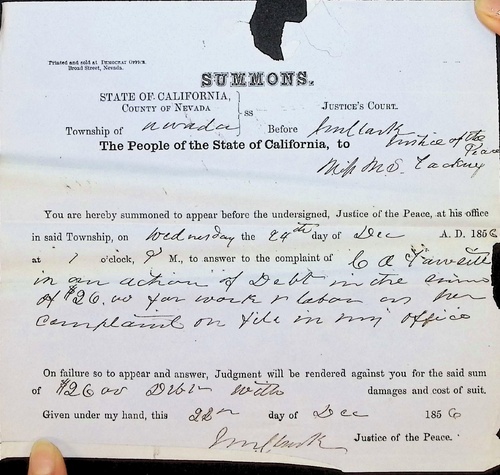 Printed and sold at DEMOCRAT OFFICE,
Broad Street, Nevada.
SUMMONS.
STATE OF CALIFORNIA,
COUNTY OF NEVADA
ss
JUSTICE'S COURT.
Township of Nevada Before Clark Justice of the Peace
The People of the State of California, to
Miss M S.
You are hereby summoned to appear before the undersigned, Justice of the Peace, at his office
in said Township, on Wednesday the 24th day of Dec A. D. 1856
at 1 o'clock, P M., to answer to the complaint of C A
in an action of Debt in the sum
of $26.00 for work & labor as per
complaint on file in my office
On failure so to appear and answer, Judgment will be rendered against you for the said sum
of $26 00 Debt with damages and cost of suit.
Given under my hand, this 22nd day of Dec 1856
Clark Justice of the Peace.